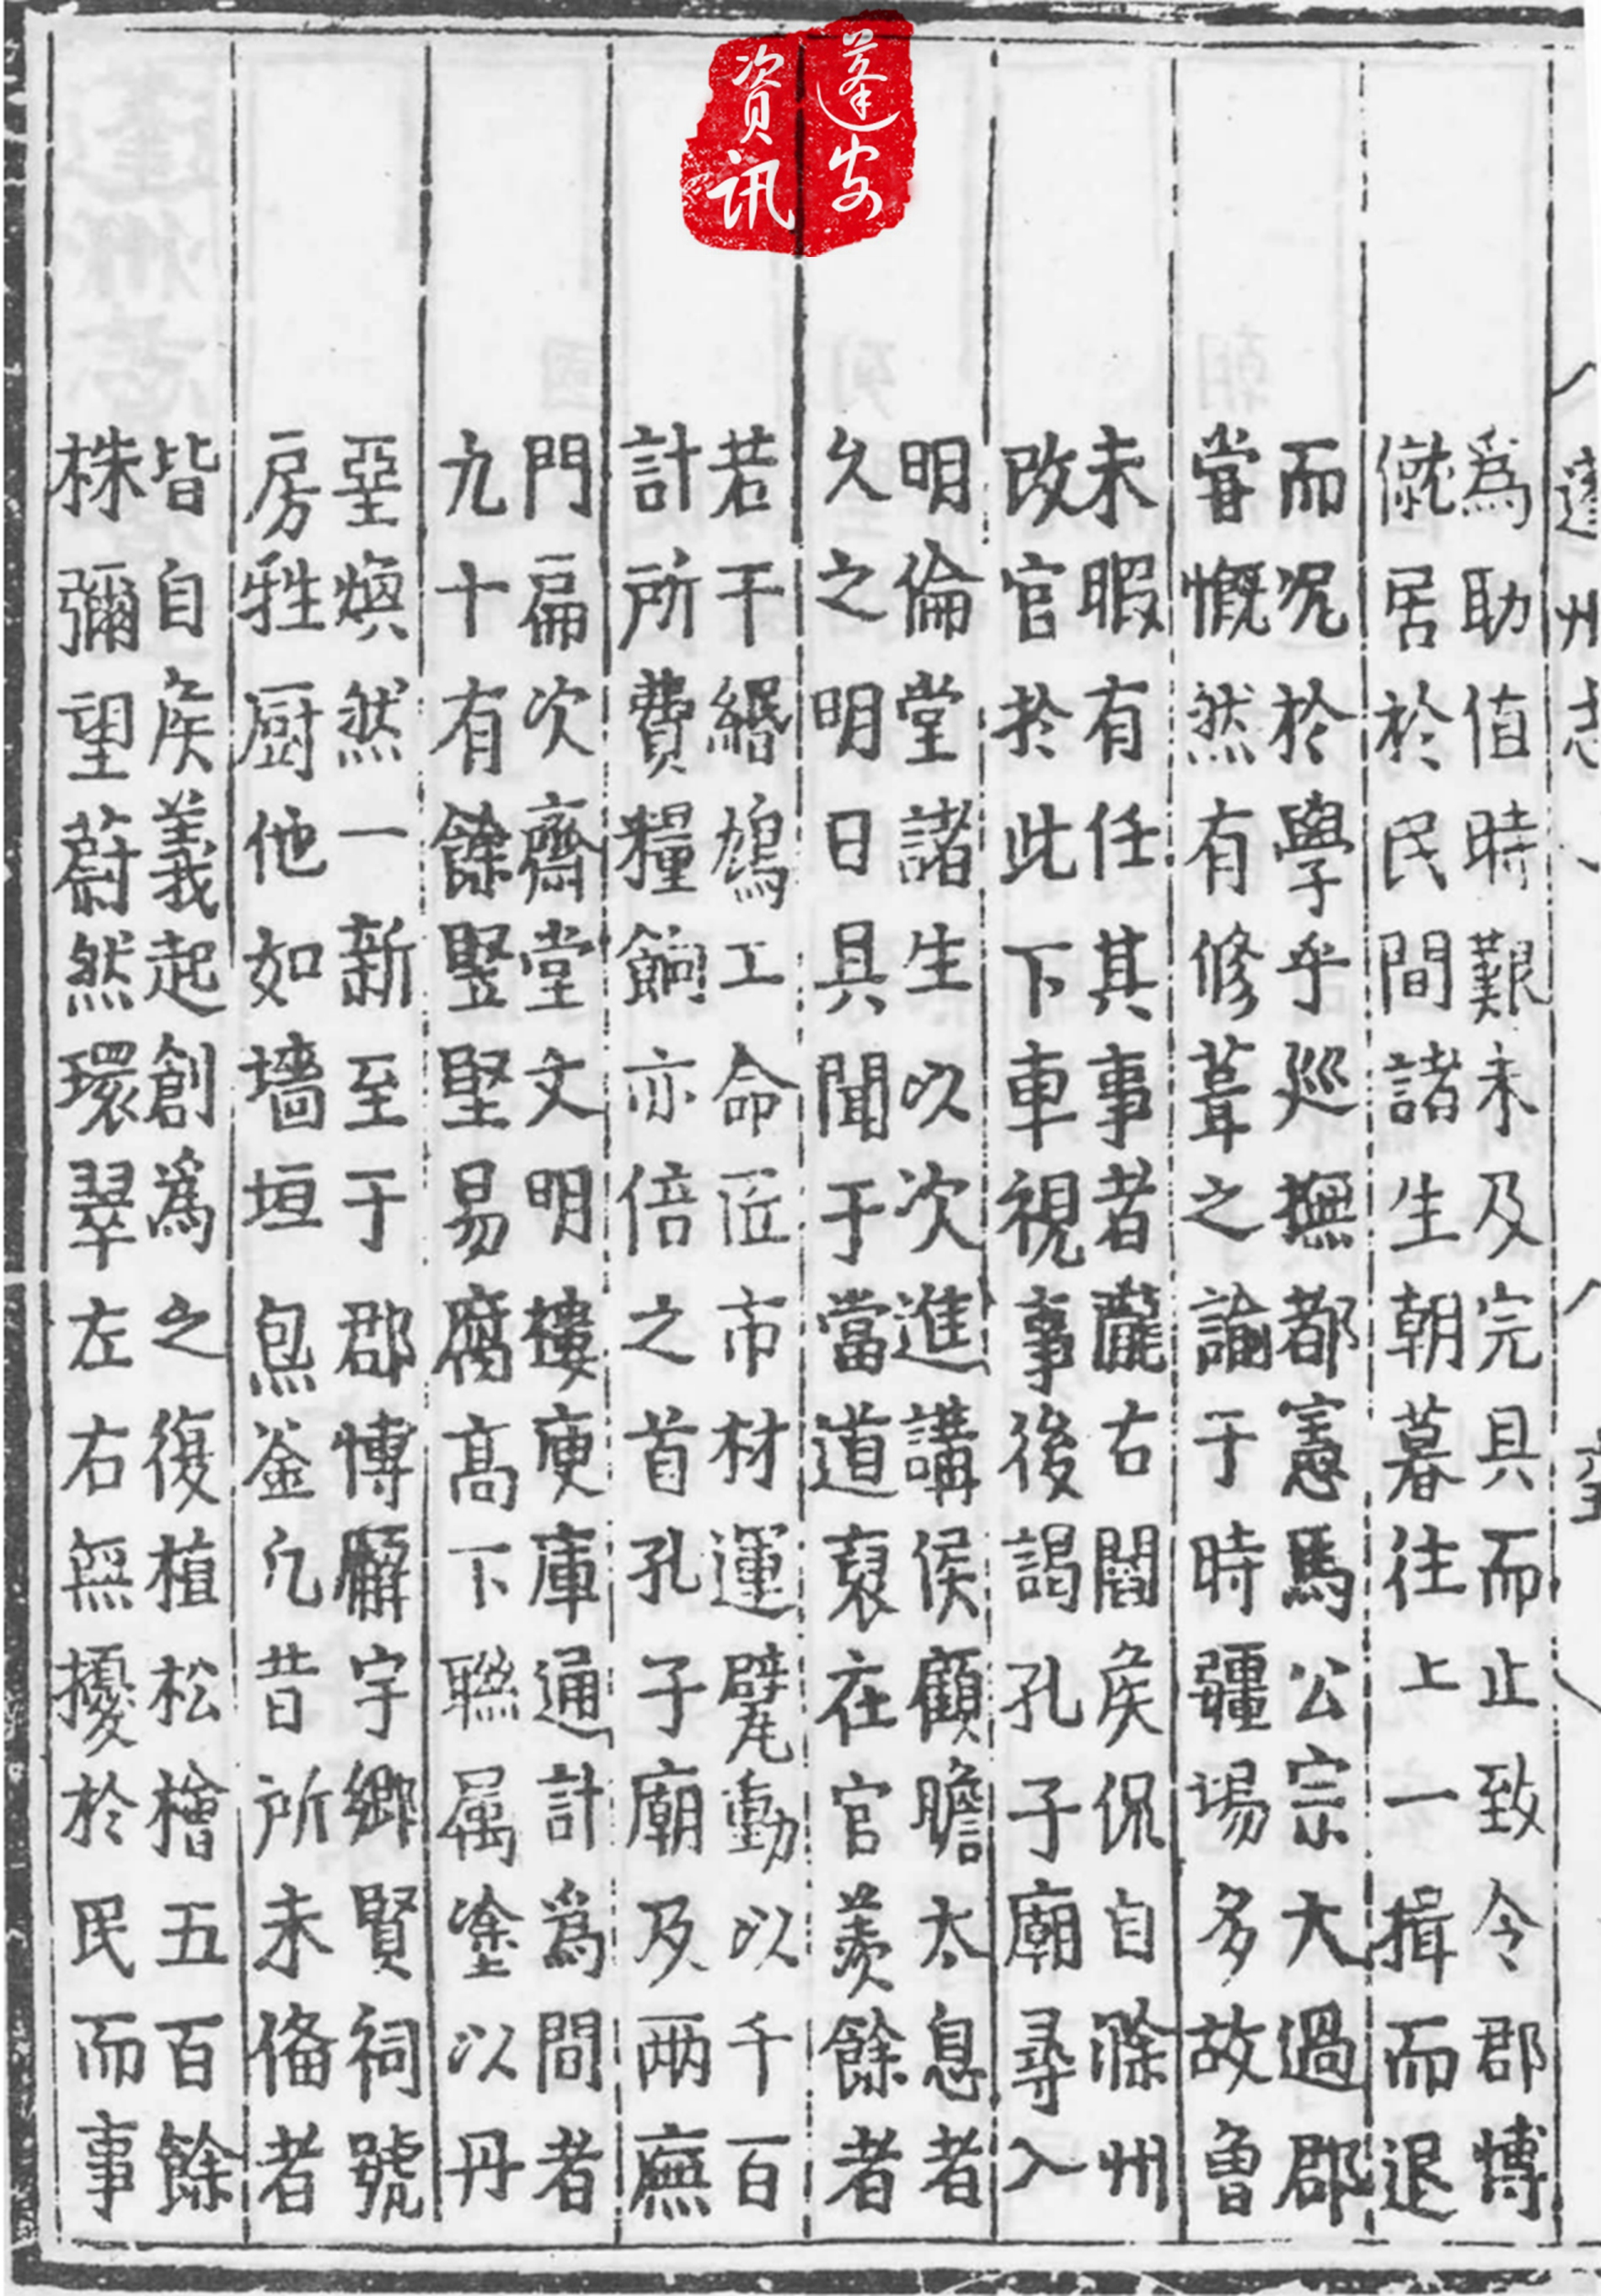 蓬安
資訊
蓬州志
爲助值時艱未及完具而止致令郡博
僦居於民間諸生朝暮往上一揖而退
而况於學乎廵撫都憲馬公宗大過郡
甞慨然有修葺之諭于時疆場多故魯
未暇有任其事者龎右閻矦侃自滁州
改官於此下車視事後謁孔子廟尋入
明倫堂諸生以次進講侯顧瞻太息者
乆之明日具聞于當道裒在官羨餘者
若干緡鳩工命匠市材運甓動以千百
計所費糧餉亦倍之首孔子廟及两廡
門扁次齋堂文明樓庾庫通計爲間者
九十有餘竪堅易腐高下聯属塗以丹
堊煥然一新至于郡博廨宇鄉賢祠號
房牲厨他如墻垣庖釜凢昔所未俻者
皆自矦義起創爲之復植松檜五百餘
株彌望蔚然環翠左右無擾於民而事